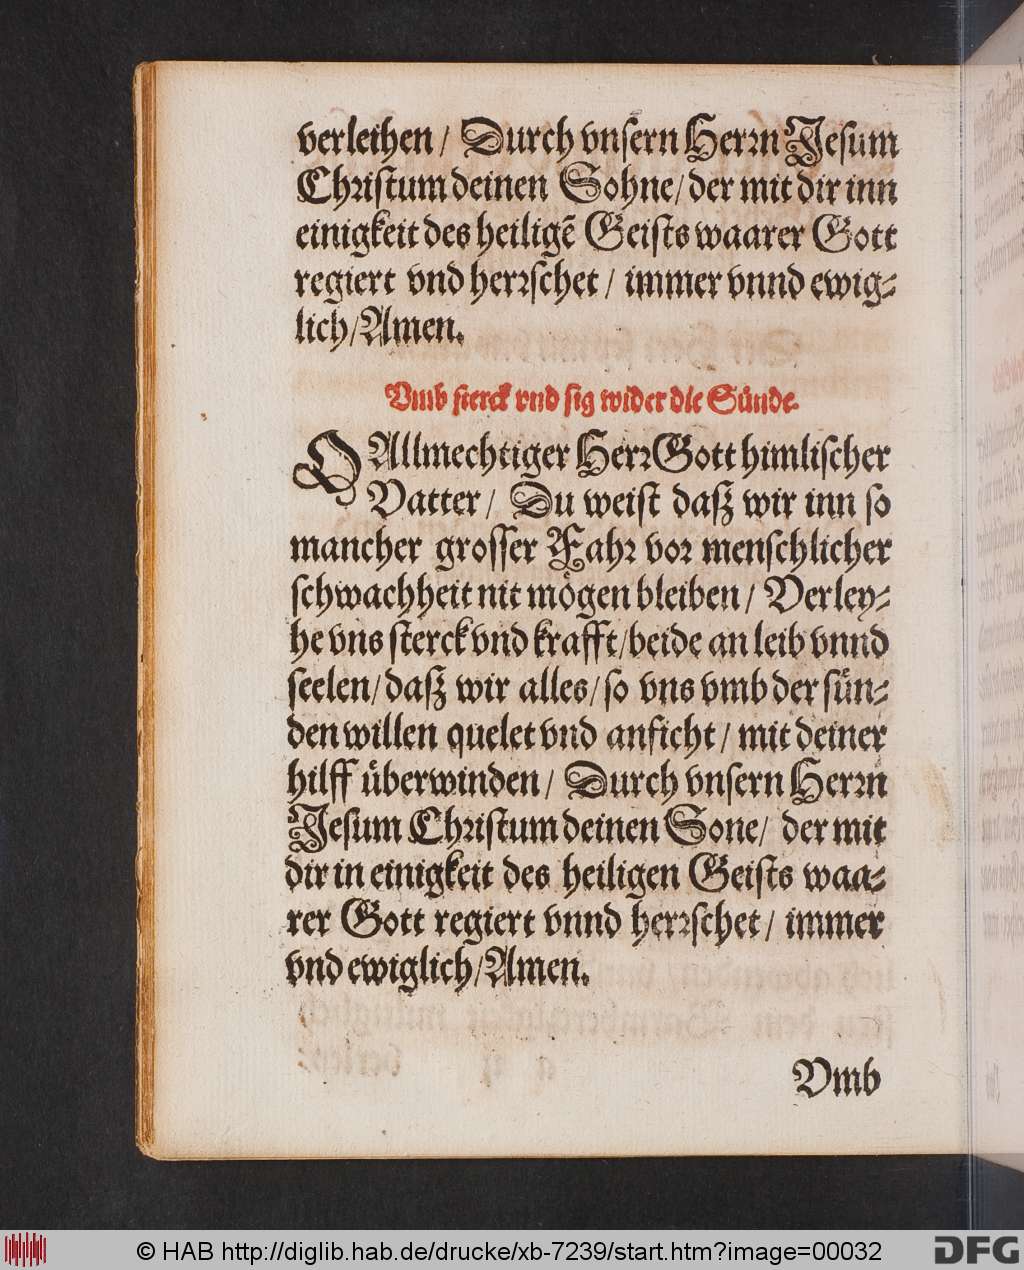 verleihen / Durch vnsern Herrn Jesum
Christum deinen Sohne / der mit dir inn
einigkeit des heiligẽ Geists waarer Gott
regiert vnd herrschet / immer vnnd ewig-
lich / Amen.
Vmb sterck vnd sig wider die Sünde.
O Allmechtiger Herr Gott himlischer
Vatter / Du weist daß wir inn so
mancher grosser Fahr vor menschlicher
schwachheit nit mögen bleiben / Verley-
he vns sterck vnd krafft / beide an leib vnnd
seelen / daß wir alles / so vns vmb der sün-
den willen quelet vnd anficht / mit deiner
hilff überwinden / Durch vnsern Herrn
Jesum Christum deinen Sone / der mit
dir in einigkeit des heiligen Geists waa-
rer Gott regiert vnnd herrschet / immer
vnd ewiglich / Amen.
Vmb
© HAB http://diglib.hab.de/drucke/xb-7239/start.htm?image=00032
DFG